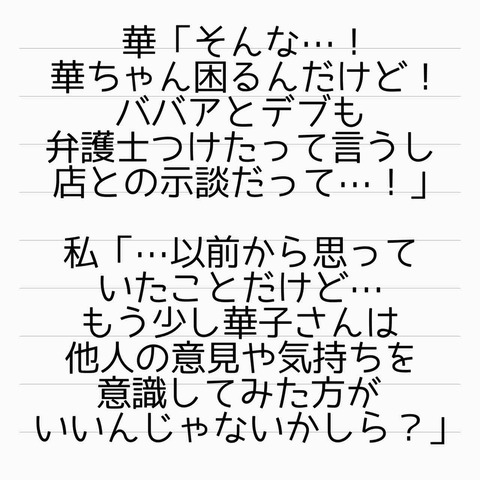 華「そんな…！
華ちゃん困るんだけど！
ババアとデブも
弁護士つけたって言うし
店との示談だって…！」
私「…以前から思って
いたことだけど…
もう少し華子さんは
他人の意見や気持ちを
意識してみた方が
いいんじゃないかしら？」